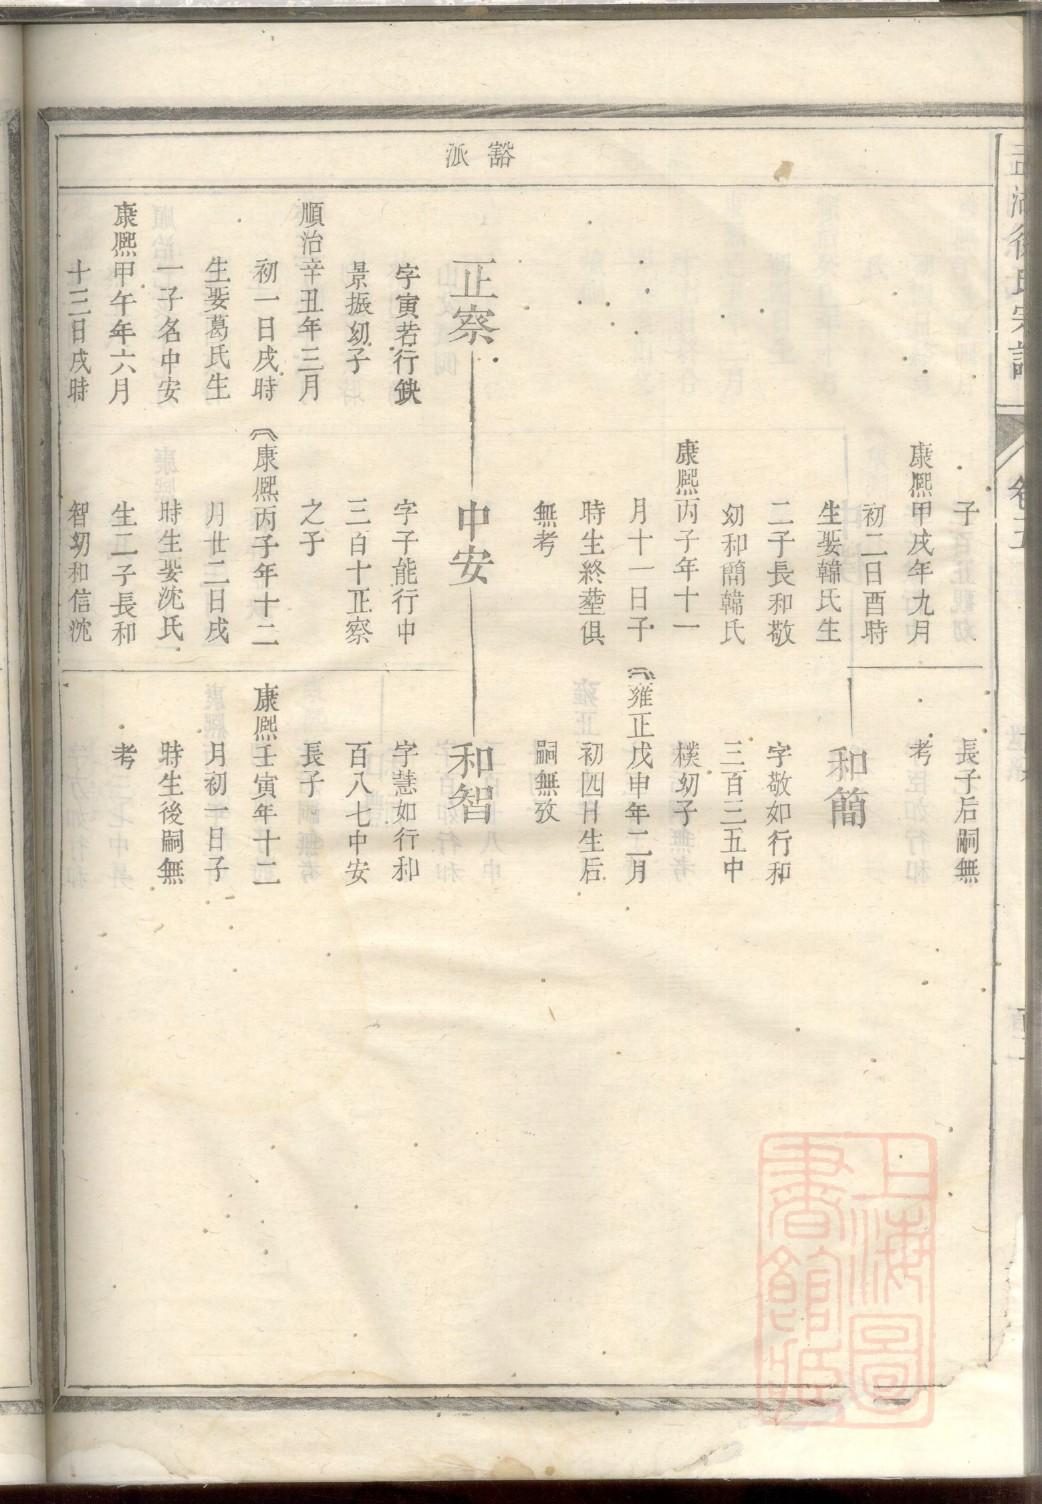 徐氏宗譜
卷五
谿派
正察
字寅若行鈌
景振幼子
順治辛丑年三月
初一日戌時
生娶葛氏生
一子名中安
康熙甲午年六月
十三日戌時
子
康熙甲戌年九月
初二日酉時
生娶韓氏生
二子長和敬
幼和簡韓氏
康熙丙子年十一
月十一日子
時生終塟俱
無考
中安
字子能行中
三百十正察
之子
康熙丙子年十二
月廿二日戌
時生娶沈氏
生二子長和
智幼和信沈
長子后嗣無
考
和簡
字敬如行和
三百三五中
樸幼子
雍正戊申年二月
初四日生后
嗣無攷
和智
字慧如行和
百八七中安
長子
康熙壬寅年十二
月初一日子
時生後嗣無
考
上海圖
書館藏